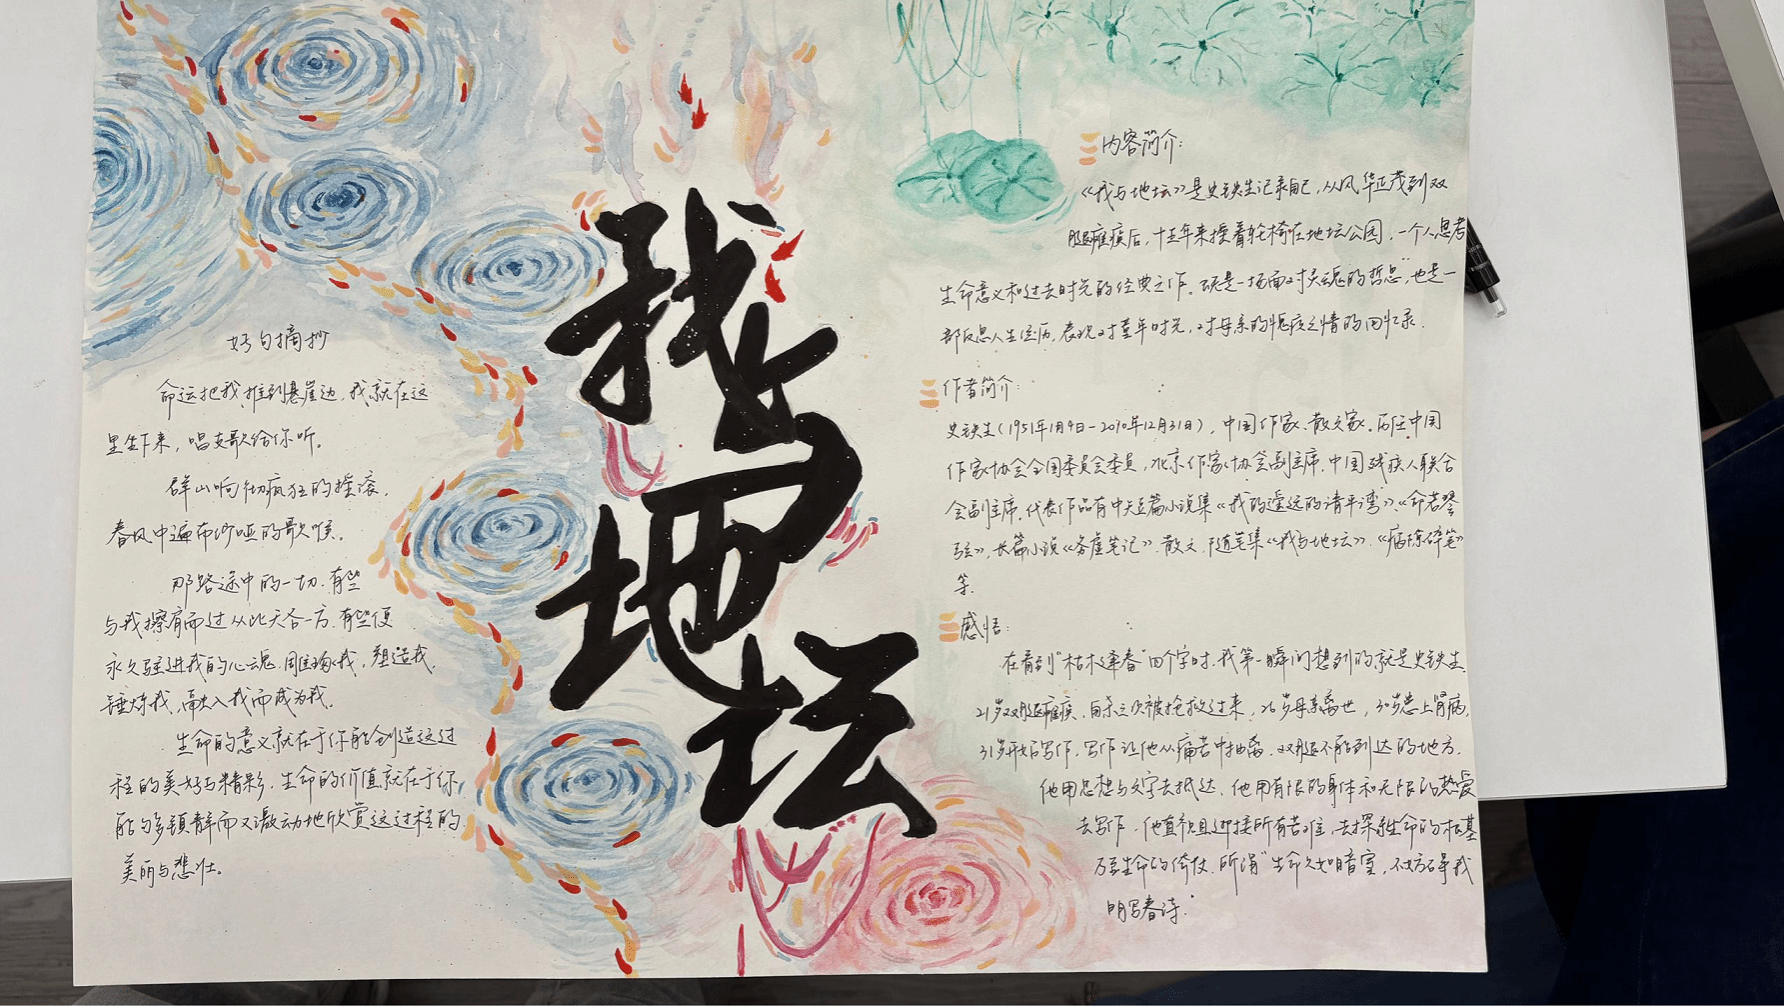 我与地坛
好句摘抄
命运把我推到悬崖边,我就在这
里坐下来,唱支歌给你听。
群山响彻疯狂的摇滚,
春风中遍布沙哑的歌喉。
那路途中的一切,有些
与我擦肩而过从此天各一方,有些便
永久驻进我的心魂,雕琢我,塑造我,
锤炼我,融入我而成为我。
生命的意义就在于你能创造这过
程的美好与精彩,生命的价值就在于你
能够镇静而又激动地欣赏这过程的
美丽与悲壮。
内容简介:
《我与地坛》是史铁生记录自己,从风华正茂到双
腿瘫痪后,十五年来摇着轮椅在地坛公园,一个人思考
生命意义和过去时光的经典之作。既是一场面对灵魂的哲思,也是一
部反思人生经历,表现对童年时光,对母亲的忏疚之情的回忆录.
作者简介:
史铁生(1951年1月4日-2010年12月31日),中国作家、散文家。历任中国
作家协会全国委员会委员,北京作家协会副主席,中国残疾人联合
会副主席。代表作品有中短篇小说集《我的遥远的清平湾》、《命若琴
弦》,长篇小说《务虚笔记》.散文.随笔集《我与地坛》.《病隙碎笔》
等.
感悟:
在看到"枯木逢春"四个字时,我第一瞬间想到的就是史铁生.
21岁双腿瘫痪,自杀三次被抢救过来,26岁母亲离世,30岁患上肾病,
31岁开始写作,写作让他从痛苦中抽离,双腿不能到达的地方,
他用思想与文字去抵达,他用有限的身体和无限的热爱
去写作,他直视且迎接所有苦难,去探寻生命的根基
及生命的倚仗.所谓"生命久如暗室,不妨碍我
明写春诗."